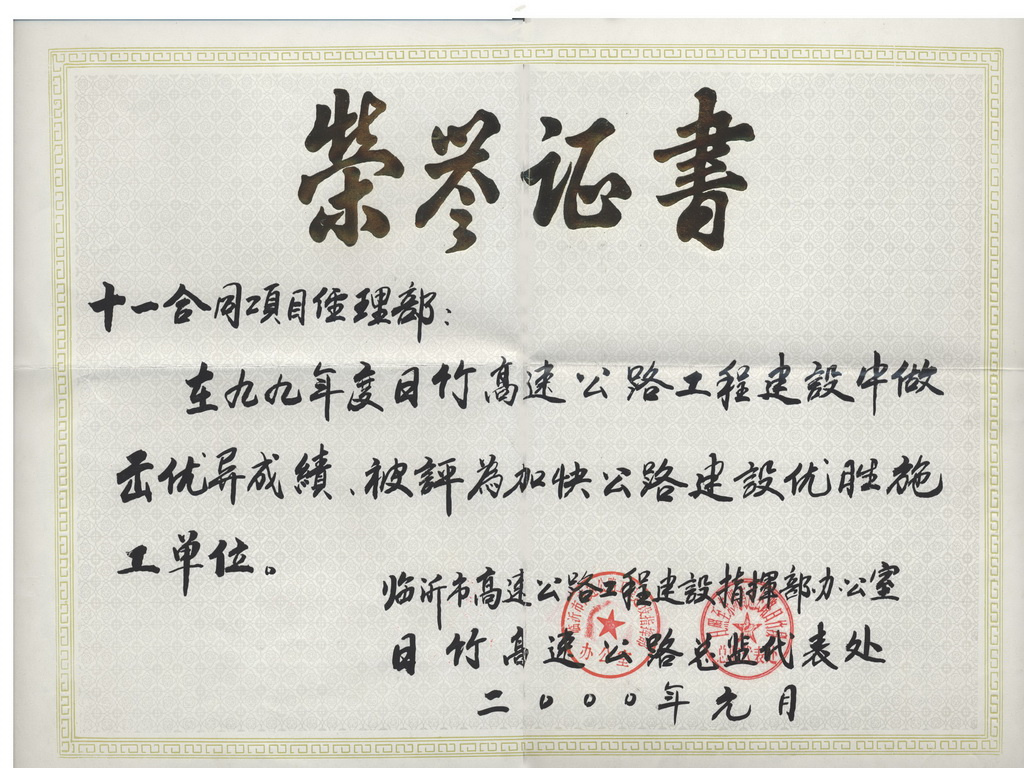 榮誉证書
十一合同項目経理部：
在九九年度日竹高速公路工程建設中做
出优异成績、被評為加快公路建設优胜施
工单位。
临沂市高速公路工程建設指揮部办公室
日竹高速公路总监代表处
二〇〇〇年元月